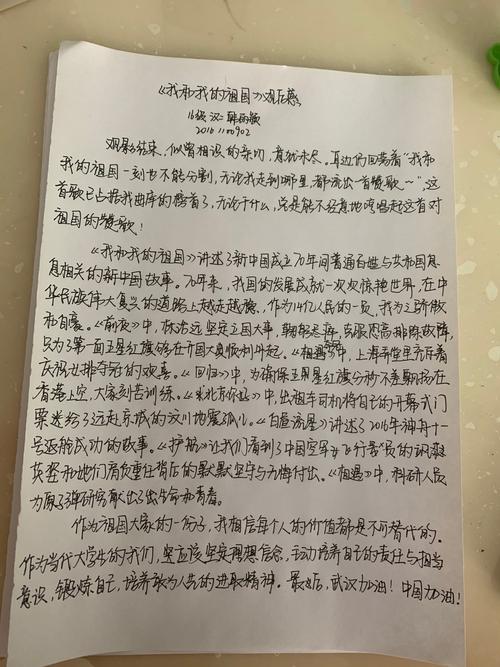 《我和我的祖国》观后感
16级 汉二 韩雨欣
2016110902
观影结束，似曾相识的亲切，意犹未尽。耳边仍回荡着“我和
我的祖国一刻也不能分割，无论我走到哪里，都流出一首赞歌～”，这
首歌已占据我曲库的榜首了，无论干什么，总是能不经意地哼唱起这首对
祖国的赞歌！
《我和我的祖国》讲述了新中国成立70年间普通百姓与共和国息
息相关的新中国故事。70年来，我国的发展成就一次次惊艳世界，在中
华民族伟大复兴的道路上越走越稳，作为14亿人民的一员，我为之骄傲
和自豪。《前夜》中，林治远坚定立国大事，克服恐高排除故障，
只为了第一面五星红旗能在开国大典顺利升起。《相遇》中，上海弄堂里充斥着
庆祝女排夺冠的欢喜。《回归》中，为确保五星红旗分秒不差飘扬在
香港上空，大家刻苦训练。《北京你好》中，出租车司机将自己的开幕式门
票送给了远赴京城的汶川地震孤儿。《白昼流星》讲述了2016年神舟十一
号返航成功的故事。《护航》让我们看到了中国空军女飞行员的飒爽
英姿和她们肩负重任背后的默默坚守与无悔付出。《相遇》中，科研人员
为原子弹研究献出了生命和青春。
作为祖国大家的一份子，我相信每个人的价值都是不可替代的。
作为当代大学生的我们，更应该坚定理想信念，主动培养自己的责任与担当
意识，锻炼自己，培养敢为人先的进取精神。最后，武汉加油！中国加油！